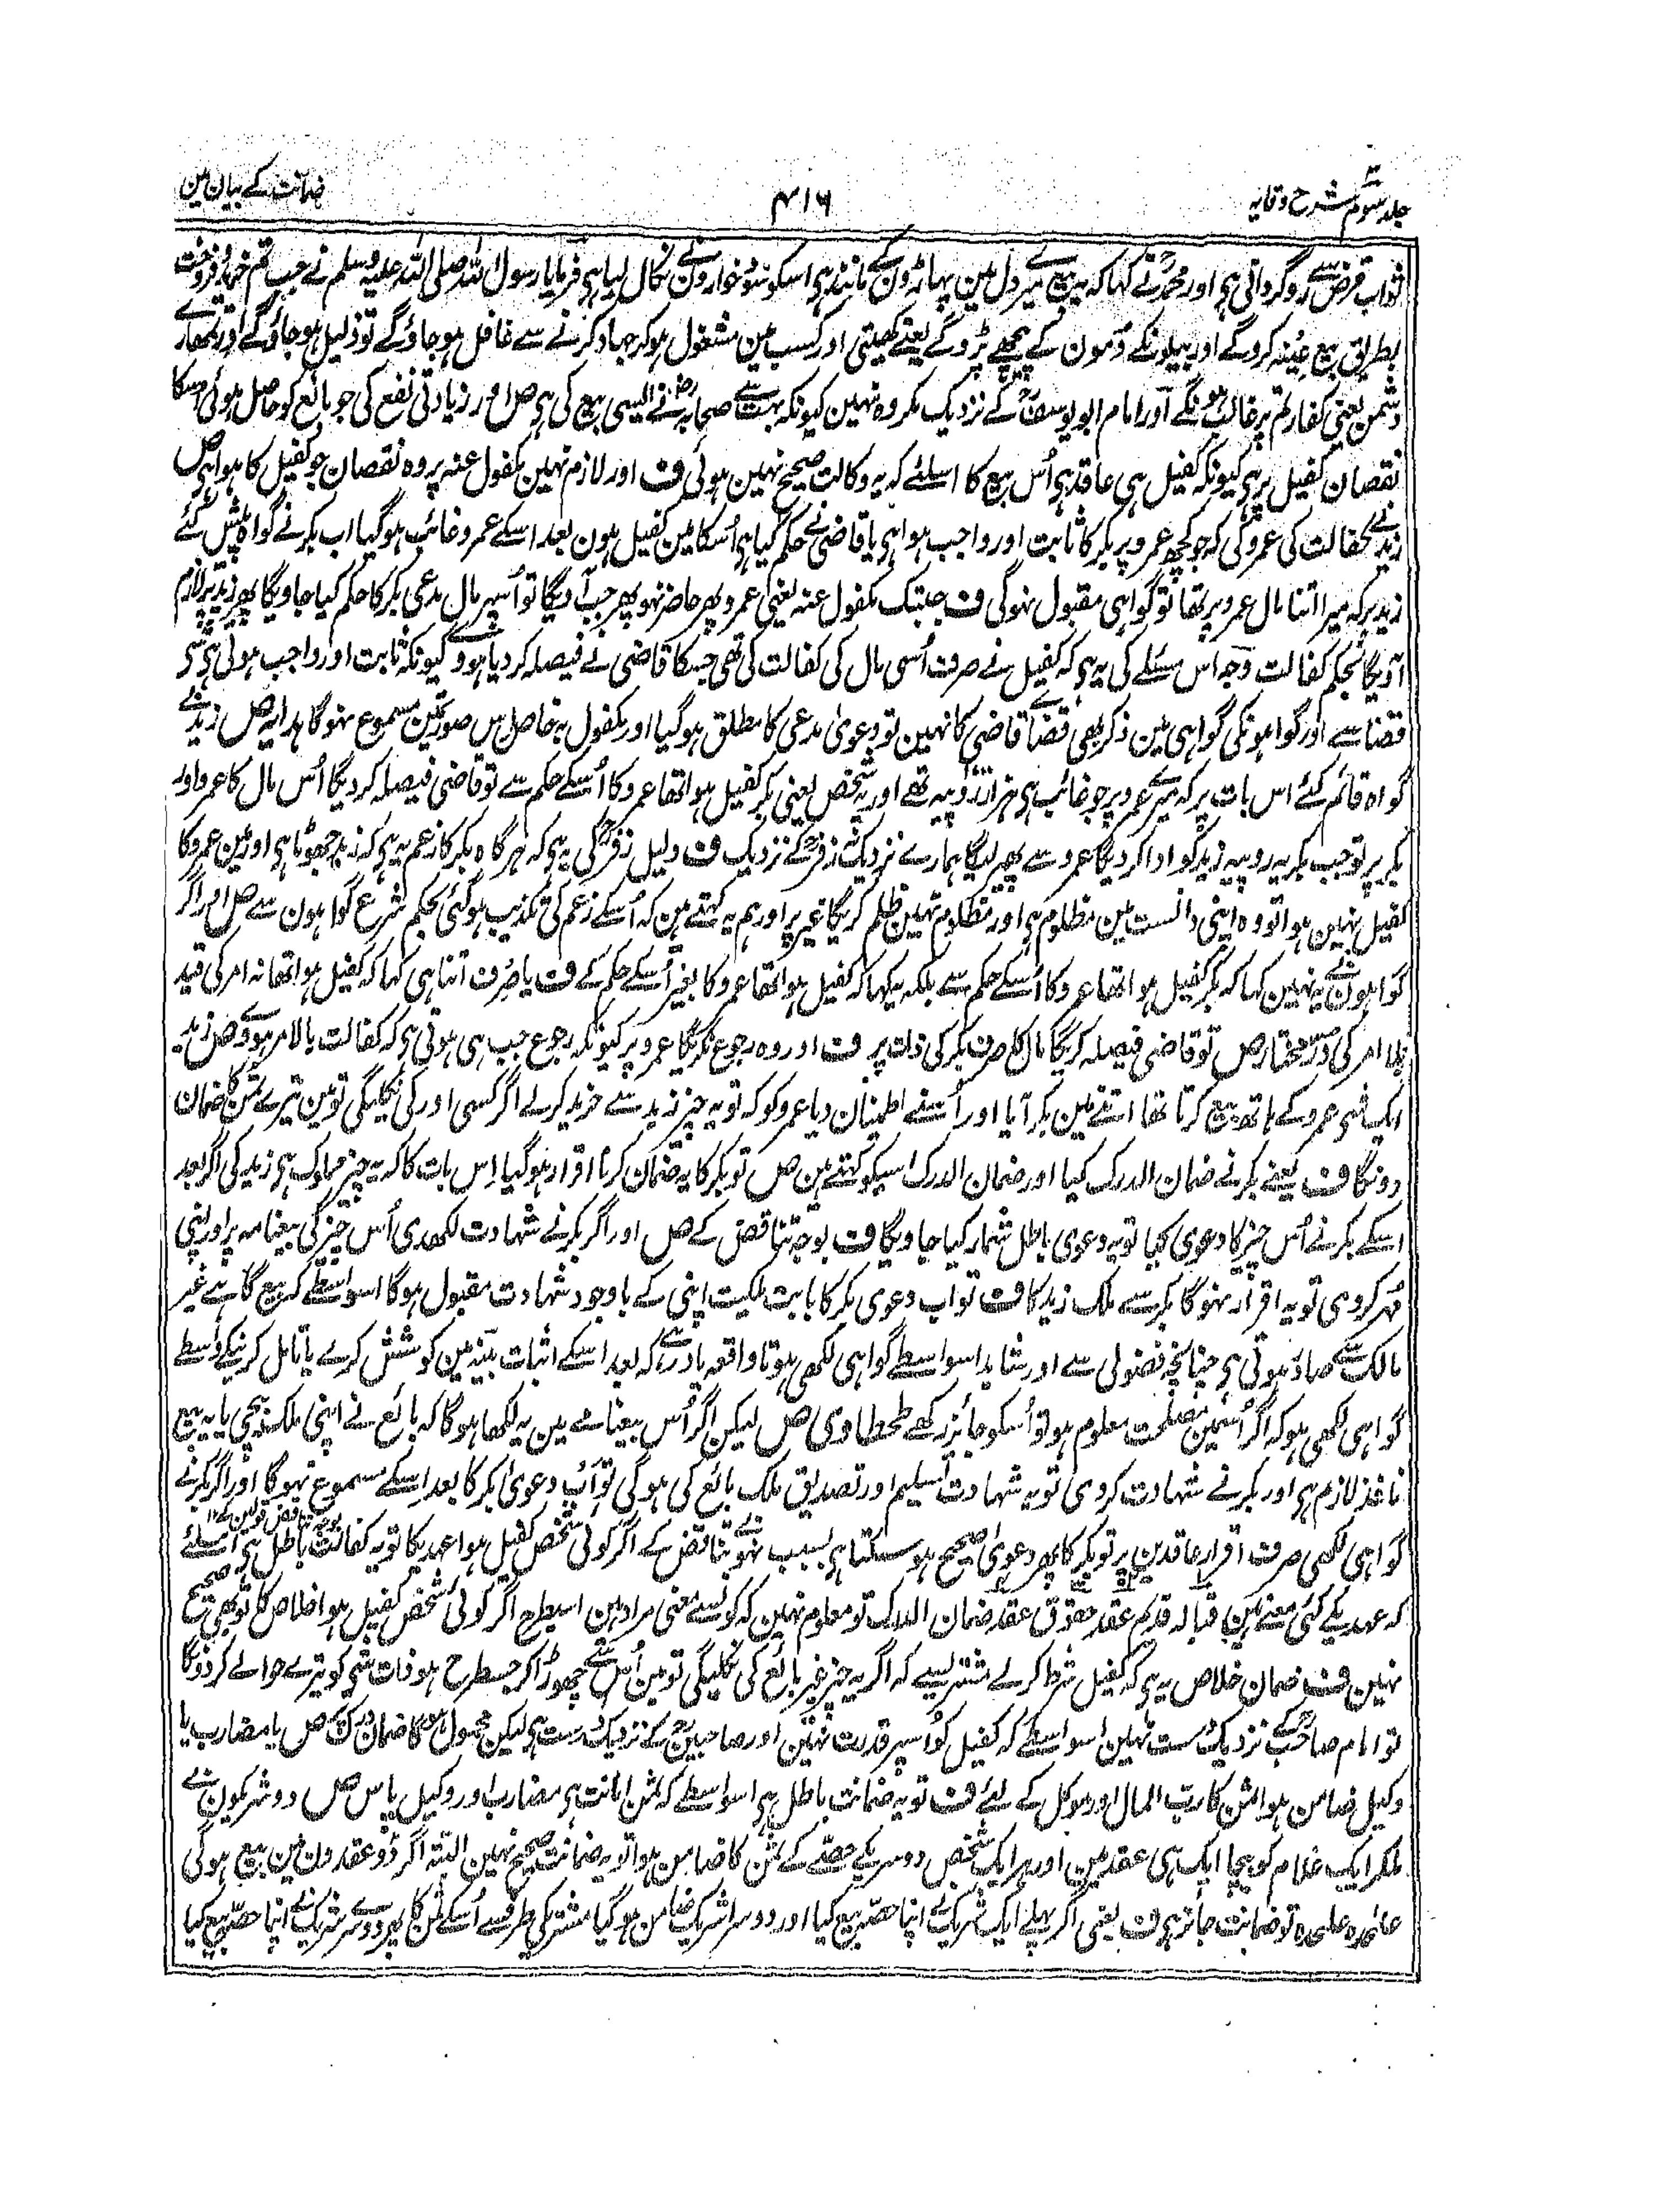 جلد سوم شرح وقایہ
۴۱۶
ضمانت کے بیان مین
ثواب قرض سے روگردانی ہی اور محمدؒ نے کہا کہ یہ بیع میرے دل مین پہاڑون کے مانند ہی اسکو سود خوارون نے نکال لیا ہی فرمایا رسول اللہ صلی اللہ علیہ وسلم نے جب تم خرید و فروخت
بطریق بیع عِینہ کروگے اور بیلونکے دُمون کے پیچھے پڑوگے یعنے کھیتی اور کسب مین مشغول ہوکر جہاد کرنے سے غافل ہو جاؤگے تو ذلیل ہو جاؤگے اور تمھارے
دشمن یعنی کفار تم پر غالب ہونگے اور امام ابو یوسفؒ کے نزدیک مکروہ نہین کیونکہ بہت سے صحابہؓ نے ایسی بیع کی ہی ص اور زیادتی نفع کی جو بائع کو حاصل ہوئی اسکا
نقصان کفیل پر ہی کیونکہ کفیل ہی عاقد ہی اُس بیع کا اسلئے کہ یہ وکالت صحیح نہین ہوئی ف اور لازم نہین مکفول عنہ پر وہ نقصان جو کفیل کا ہوا ہی ص
زید نے کفالت کی عمرو کی کہ جو کچھ عمرو پر بکر کا ثابت اور واجب ہوا ہی یا قاضی نے حکم کیا ہی اُسکا مین کفیل ہون بعد اسکے عمرو غائب ہوگیا اب بکر نے گواہ پیش کئے
زید پر کہ میرا اتنا مال عمرو پر تھا تو گواہی مقبول نہوگی ف جبتک مکفول عنہ یعنی عمرو پھر حاضر نہو پھر جب آویگا تو اُسپر مال مدعی بکر کا حکم کیا جاویگا پھر زید پر لازم
آویگا بحکم کفالت وجہ اس مسئلے کی یہ ہی کہ کفیل نے صرف اُسی مال کی کفالت کی تھی جسکا قاضی نے فیصلہ کر دیا ہووے کیونکہ ثابت اور واجب ہوتی ہی شی
قضا سے اور گواہونکی گواہی مین ذکر بھی قضاے قاضی کا نہین تو دعویٰ مدعی کا مطلق ہوگیا اور مکفول بہ خاص اس صورتمین مسموع نہوگا ہدایہ ص زید نے
گواہ قائم کئے اس بات پر کہ میرے عمرو پر جو غائب ہی ہزار روپیہ تھے اور یہ شخص یعنی بکر کفیل ہوا تھا عمرو کا اُسکے حکم سے تو قاضی فیصلہ کر دیگا اُس مال کا عمرو اور
بکر پر تو جب بکر یہ روپیہ زید کو ادا کردیگا عمرو سے پھیر لیگا ہمارے نزدیک نہ زفرؒ کے نزدیک ف دلیل زفرؒ کی یہ ہی کہ ہرگاہ بکر کا زعم یہ ہی کہ زید جھوٹا ہی اور مین عمرو کا
کفیل نہین ہوا تو وہ اپنی دانست مین مظلوم ہی اور مظلوم نہین ظلم کریگا غیر پر اور ہم یہ کہتے ہین کہ اُسکے زعم کی تکذیب ہوگئی بحکم شرع گواہون سے ص اور اگر
گواہون نے یہ نہین کہا کہ بکر کفیل ہوا تھا عمرو کا اُسکے حکم سے بلکہ یہ کہا کہ کفیل ہوا تھا عمرو کا بغیر اُسکے حکم کے ف یا صرف اتنا ہی کہا کہ کفیل ہوا تھا نہ امر کی قید
بلا امر کی در مختار ص تو قاضی فیصلہ کریگا مال کا صرف بکر کی ذات پر ف اور وہ رجوع نکریگا عمرو پر کیونکہ رجوع جب ہی ہوتی ہی کہ کفالت بالامر ہووے ص زید
ایک شی عمرو کے ہاتھ بیع کرتا تھا اتنے مین بکر آیا اور اُسنے اطمینان دیا عمرو کو کہ تو یہ چیز زید سے خرید کرلے اگر کسی اور کی نکلیگی تو مین تیرے ثمن کا ضمان
دونگا ف یعنے بکر نے ضمان الدرک کیا اور ضمان الدرک اسیکو کہتے ہین ص تو بکر کا یہ ضمان کرنا اقرار ہوگیا اِس بات کا کہ یہ چیز مملوک ہی زید کی اگر بعد
اسکے بکر نے اُس چیز کا دعوی کیا تو یہ دعوی باطل شمار کیا جاویگا ف بوجہ تناقض کے ص اور اگر بکر نے شہادت لکھدی اُس چیز کی بیعنامہ پر اور اپنی
مُہر کردی تو یہ اقرار نہوگا بکر سے ملک زید کا ف تو اب دعوی بکر کا بابت ملکیت اپنی کے باوجود شہادت مقبول ہوگا اسواسطے کہ بیع گاہے غیر
مالک سے صادر ہوتی ہی چنانچہ فضولی سے اور شاید اسواسطے گواہی لکھی ہو تا واقعہ یاد رہے کہ بعد اسکے اثبات بینہ مین کوشش کرے یا تامل کرنیکے واسطے
گواہی لکھی ہو کہ اگر اُسمین مصلحت معلوم ہو تو اُسکو جائز رکھے طحطاوی ص لیکن اگر اُس بیعنامے مین یہ لکھا ہوگا کہ بائع نے اپنی ملک بیچی یا یہ بیع
نافذ لازم ہی اور بکر نے شہادت کردی تو یہ شہادت تسلیم اور تصدیق ملک بائع کی ہوگی تو اب دعویٰ بکر کا بعد اِسکے مسموع نہوگا اور اگر بکر نے
گواہی لکھی صرف اقرار عاقدین پر تو بکر کا پھر دعویٰ صحیح ہوسکتا ہی بسبب نہونے تناقض کے اگر کوئی شخص کفیل ہوا عہدیکا تو یہ کفالت باطل ہی اسلئے
کہ عہدیکے کئی معنے ہین قبالہ قدیم عقد حقوق عقد ضمان الدرک تو معلوم نہین کہ کونسے معنی مراد ہین اسیطرح اگر کوئی شخص کفیل ہوا خلاص کا تو بھی صحیح
نہین ف ضمان خلاص یہ ہی کہ کفیل شرط کرلے مشتریسے کہ اگر یہ چیز غیر بائع کی نکلیگی تو مین اُس سے چھوڑا کر جسطرح ہو ذات شی کو تیرے حوالے کردونگا
تو امام صاحبؒ کے نزدیک درست نہین اسواسطے کہ کفیل کو اُسپر قدرت نہین اور صاحبینؒ کے نزدیک درست ہی لیکن محمول ہوگا ضمان درک پر ص یا مضارب یا
وکیل ضامن ہوا ثمن کا رب المال اور موکل کے لئے ف تو یہ ضمانت باطل ہی اسواسطے کہ ثمن امانت ہی مضارب اور وکیل پاس ص دو شریکون نے
ملکر ایک غلام کو بیچا ایک ہی عقد مین اور ہر ایک شخص دوسریکے حصّے کے ثمن کا ضامن ہوا تو یہ ضمانت صحیح نہین البتہ اگر دو عقدون مین بیع ہوگی
علیٰحدہ علیحدہ تو ضمانت جائز ہی ف یعنی اگر پہلے ایک شریک نے اپنا حصّہ بیع کیا اور دوسرا شریک ضامن ہوگیا مشتریکی طرفسے اُسکے ثمن کا پھر دوسرے شریک نے اپنا حصّہ بیع کیا